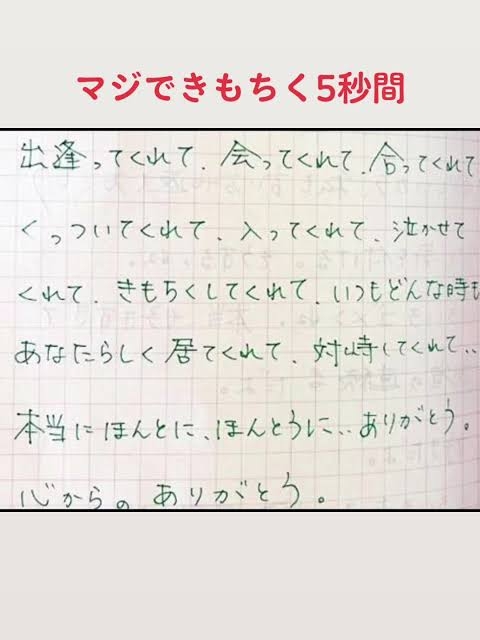 マジできもちく5秒間
出逢ってくれて、会ってくれて、合ってくれて
くっついてくれて、入ってくれて、泣かせて
くれて、きもちくしてくれて、いつもどんな時も
あなたらしく居てくれて、対峙してくれて..
本当にほんとに、ほんとうに..ありがとう。
心からの ありがとう。